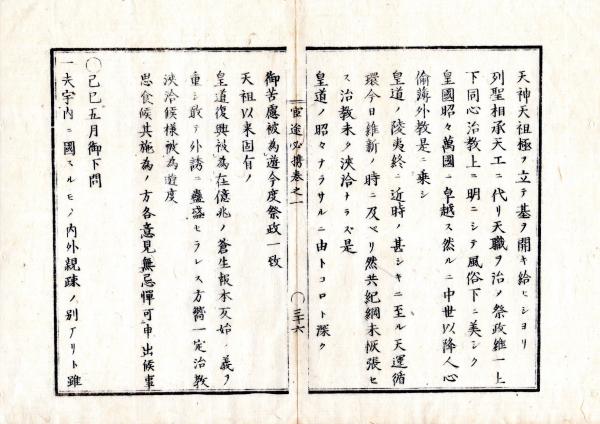 天神天祖極ヲ立テ基ヲ開キ給ヒシヨリ
列聖相承天工ニ代リ天職ヲ治メ祭政維一上
下同心治教上ニ明ニシテ風俗下ニ美シク
皇國昭々萬國ニ卓越ス然ルニ中世以降人心
偷薄外教是ニ乗シ
皇道ノ陵夷終ニ近時ノ甚シキニ至ル天運循
環今日維新ノ時ニ及ベリ然共紀綱未恢張セ
ス治教未タ浹洽ナラズ是
皇道ノ昭々ナラサルニ由トコロト深ク
官途必携巻之一
○三十六
御苦慮被為遊今度祭政一致
天祖以来固有ノ
皇道復興被為在億兆ノ蒼生報本反始ノ義ヲ
重シ敢テ外誘ニ蠱惑セラレス方嚮一定治教
浹洽候様被為遊度
思食候其施為ノ方各意見無忌憚可申出候事
○己巳五月御下問
一夫宇内ニ國スルモノ内外親疎ノ別アリト雖